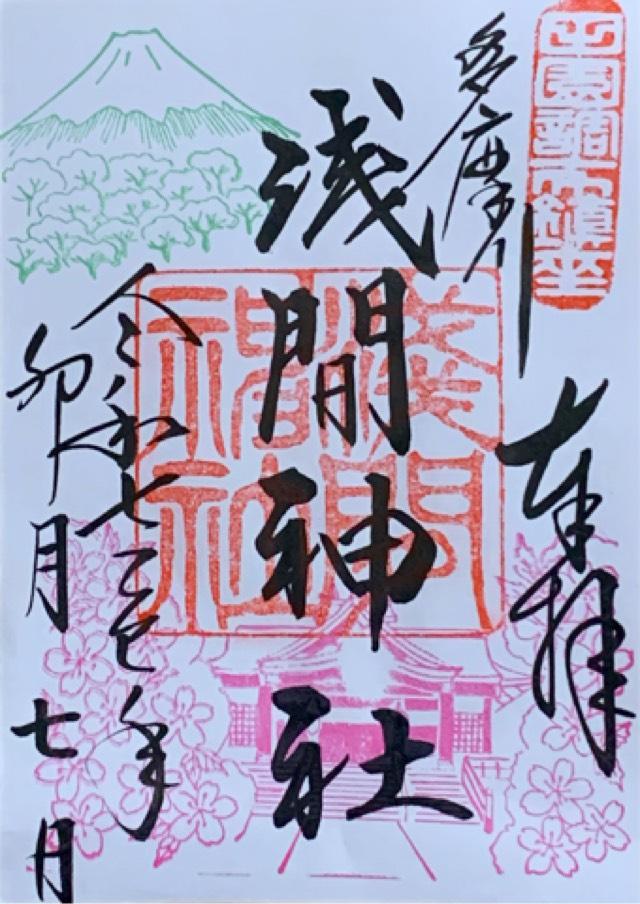 田園調布鎮座
奉拝
多摩川
浅間神社
淺間
神社
令和七乙巳年
卯月七日